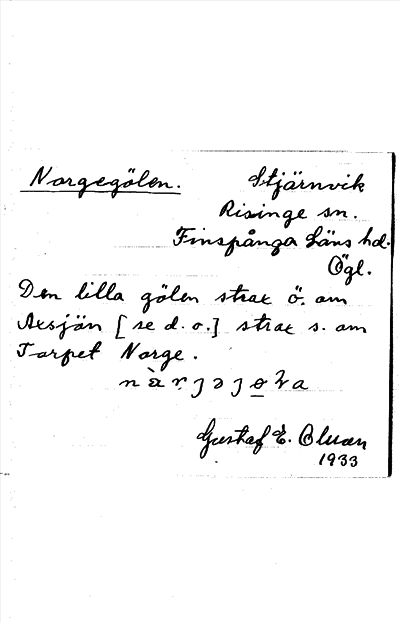 Norgegölen. Stjärnvik
Risinge sn.
Finspånga Läns hd.
Ögl.
Den lilla gölen strax ö. om
Axsjön [se d. o.] strax s. om
Torpet Norge.
Gustaf E. Olsson
1933